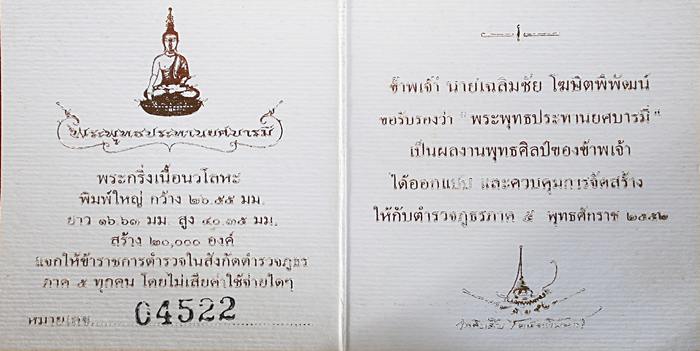 พระพุทธประทานยศบารมี
พระกริ่งเนื้อนวโลหะ
พิมพ์ใหญ่ กว้าง ๒๖.๕๕ มม.
ยาว ๑๖.๖๑ มม. สูง ๔๐.๓๕ มม.
สร้าง ๒๐,๐๐๐ องค์
แจกให้ข้าราชการตำรวจในสังกัดตำรวจภูธร
ภาค ๕ ทุกคน โดยไม่เสียค่าใช้จ่ายใดๆ
หมายเลข 04522
ข้าพเจ้า นายเฉลิมชัย โฆษิตพิพัฒน์
ขอรับรองว่า "พระพุทธประทานยศบารมี"
เป็นผลงานพุทธศิลป์ของข้าพเจ้า
ได้ออกแบบ และควบคุมการจัดสร้าง
ให้กับตำรวจภูธรภาค ๕ พุทธศักราช ๒๕๕๒